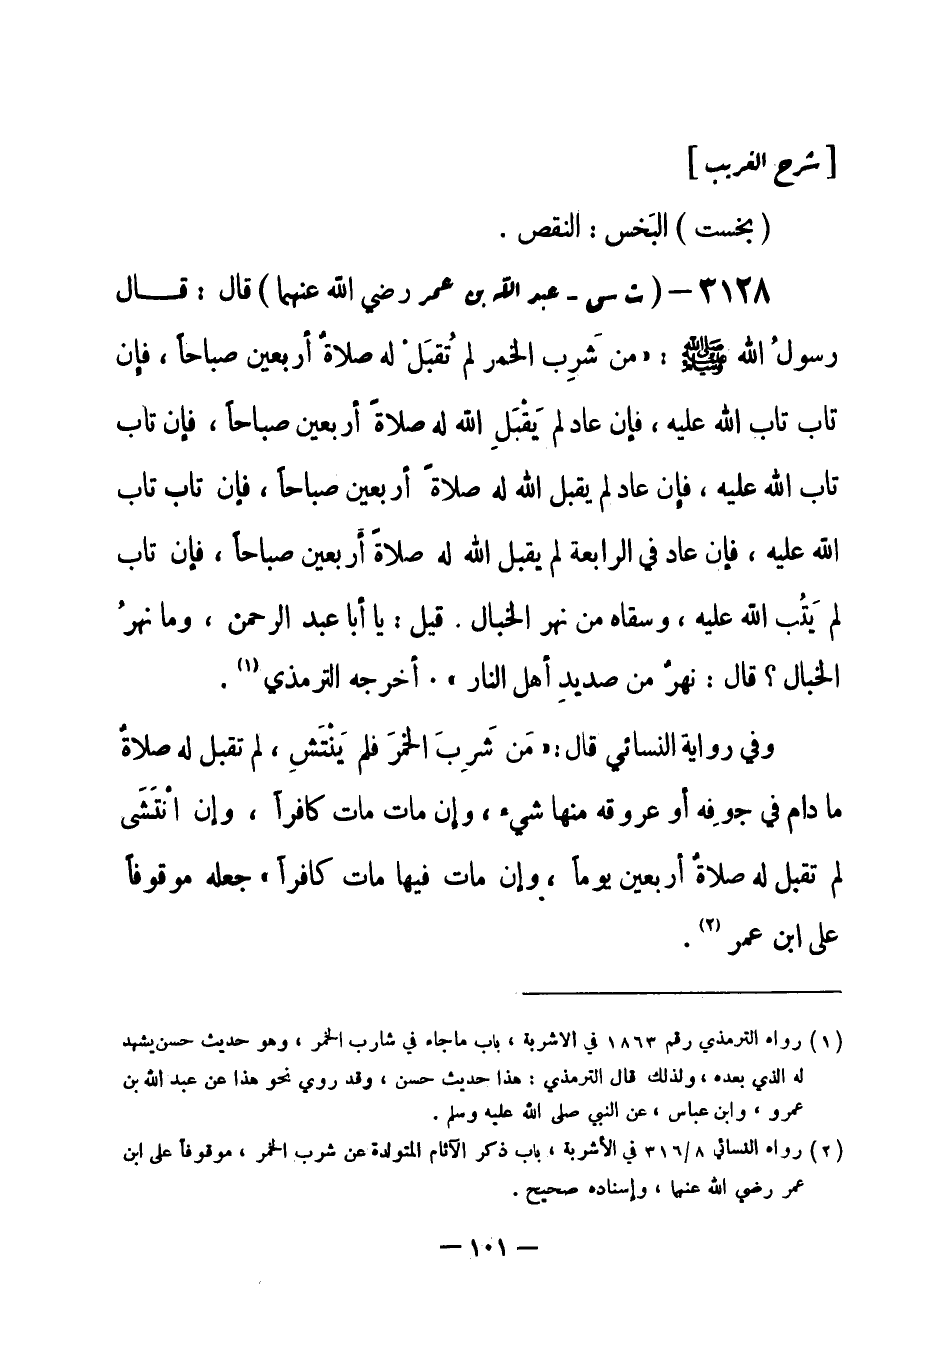 [ شرح الغريب ]
( بخست ) البَخس : النقص .
٣١٢٨ – ( ت س - عبد الله بن عمر رضي الله عنهما ) قال : قـــال
رسولُ الله ﷺ : « من شَرِب الخمر لم تُقبَلْ له صلاةٌ أربعين صباحاً ، فإن
تاب تاب الله عليه ، فإن عاد لم يَقْبَلِ الله له صلاةً أربعين صباحاً ، فإن تاب
تاب الله عليه ، فإن عاد لم يقبل الله له صلاةً أربعين صباحاً ، فإن تاب تاب
الله عليه ، فإن عاد في الرابعة لم يقبل الله له صلاةً أَربعين صباحاً ، فإن تاب
لم يَتُب الله عليه ، وسقاه من نهر الخبال . قيل : يا أبا عبد الرحمن ، وما نهرُ
الخبال ؟ قال : نهرٌ من صديدِ أهل النار » . أخرجه الترمذي (١) .
وفي رواية النسائي قال : « مَن شَرِبَ الخمرَ فلم يَنْتَشِ ، لم تقبل له صلاةٌ
ما دام في جوفِه أو عروقه منها شيء ، وإن مات مات كافراً ، وإن انْتَشَى
لم تقبل له صلاةٌ أربعين يوماً ، وإن مات فيها مات كافراً » جعله موقوفاً
على ابن عمر (٢) .
(١) رواه الترمذي رقم ١٨٦٣ في الاشربة ، باب ماجاء في شارب الخمر ، وهو حديث حسن يشهد
له الذي بعده ، ولذلك قال الترمذي : هذا حديث حسن ، وقد روي نحو هذا عن عبد الله بن
عمرو ، وابن عباس ، عن النبي صلى الله عليه وسلم .
(٢) رواه النسائي ٣١٦/٨ في الأشربة ، باب ذكر الآثام المتولدة عن شرب الخمر ، موقوفاً على ابن
عمر رضي الله عنهما ، وإسناده صحيح .
– ١٠١ –